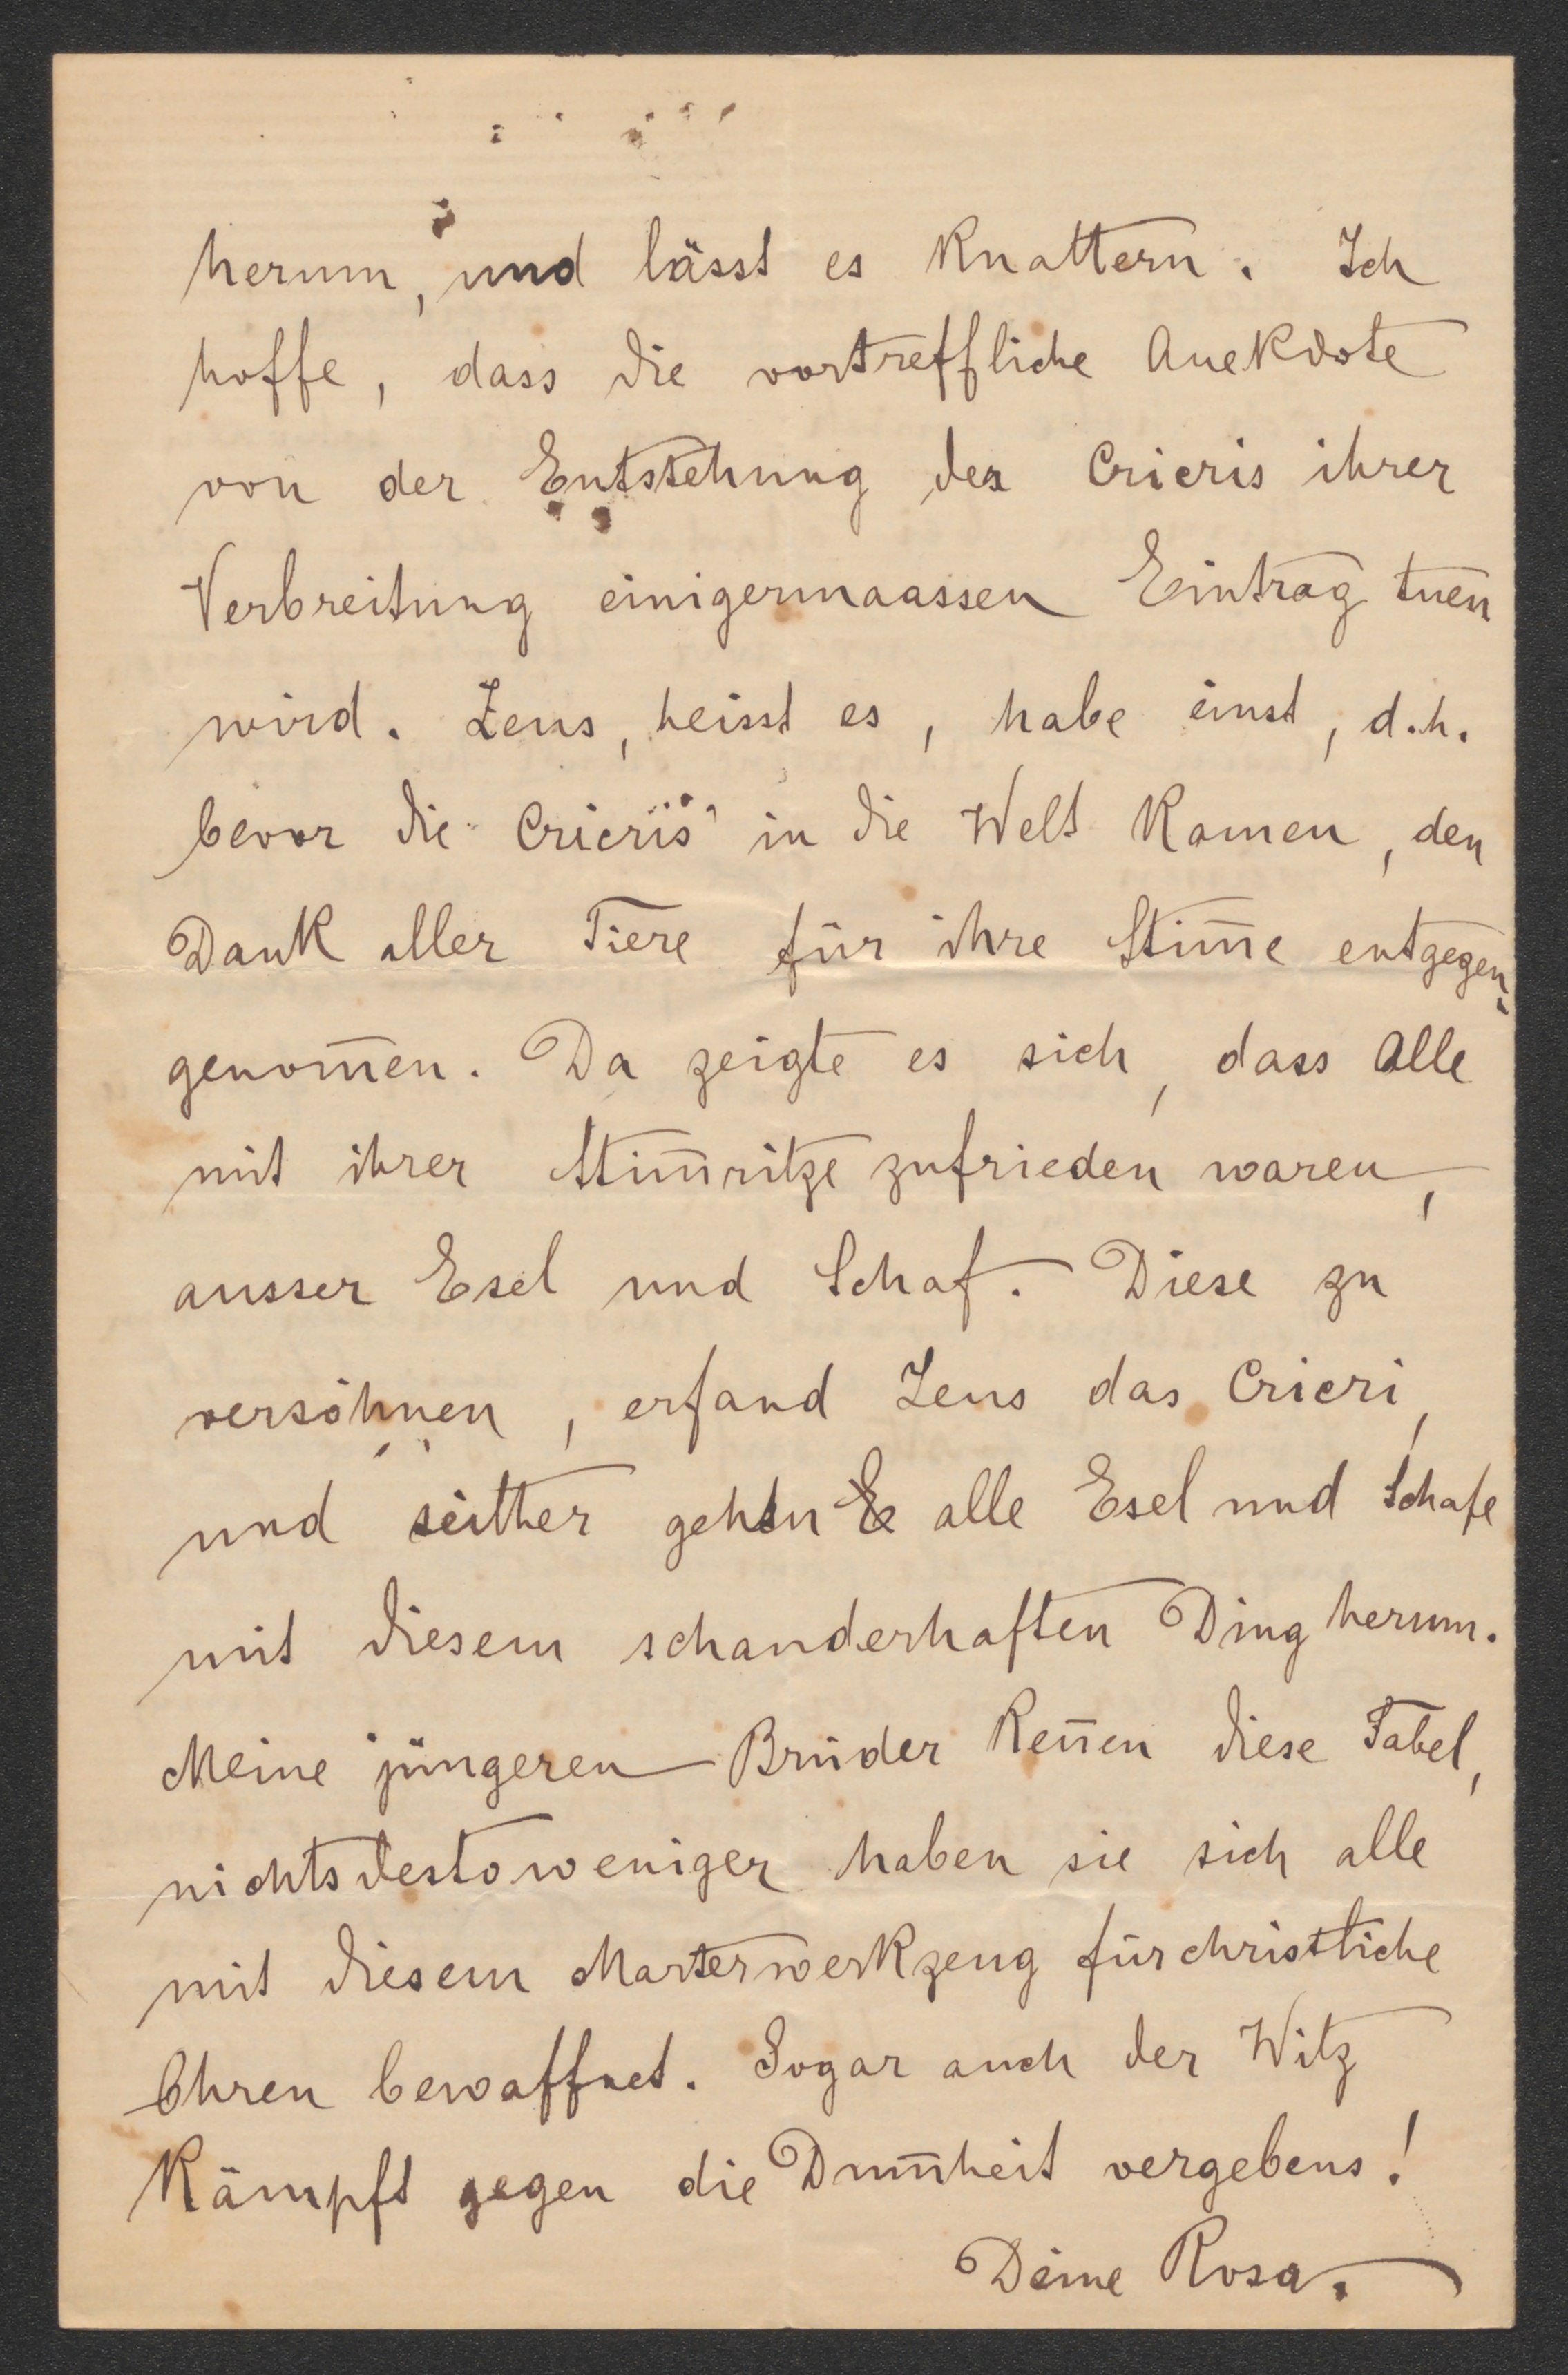 herum, und lässt es knattern. Ich
hoffe, dass die vortreffliche Anekdote
von der Entstehung der Cricris ihrer
Verbreitung einigermaassen Eintrag tuen
wird. Zeus, heisst es, habe einst, d.h.
bevor die Cricris in die Welt kamen, den
Dank aller Tiere für ihre Stim̅e entgegen-
genom̅en. Da zeigte es sich, dass Alle
mit ihrer Stim̅ritze zufrieden waren,
ausser Esel und Schaf. Diese zu
versöhnen, erfand Zeus das Cricri,
und seither gehen E alle Esel und Schafe
mit diesem schauderhaften Ding herum.
Meine jüngeren Brüder ken̅en diese Fabel,
nichtsdestoweniger haben sie sich alle
mit diesem Marterwerkzeug für christliche
Ohren bewaffnet. Sogar auch der Witz
kämpft gegen die Dum̅heit vergebens!
Deine Rosa.